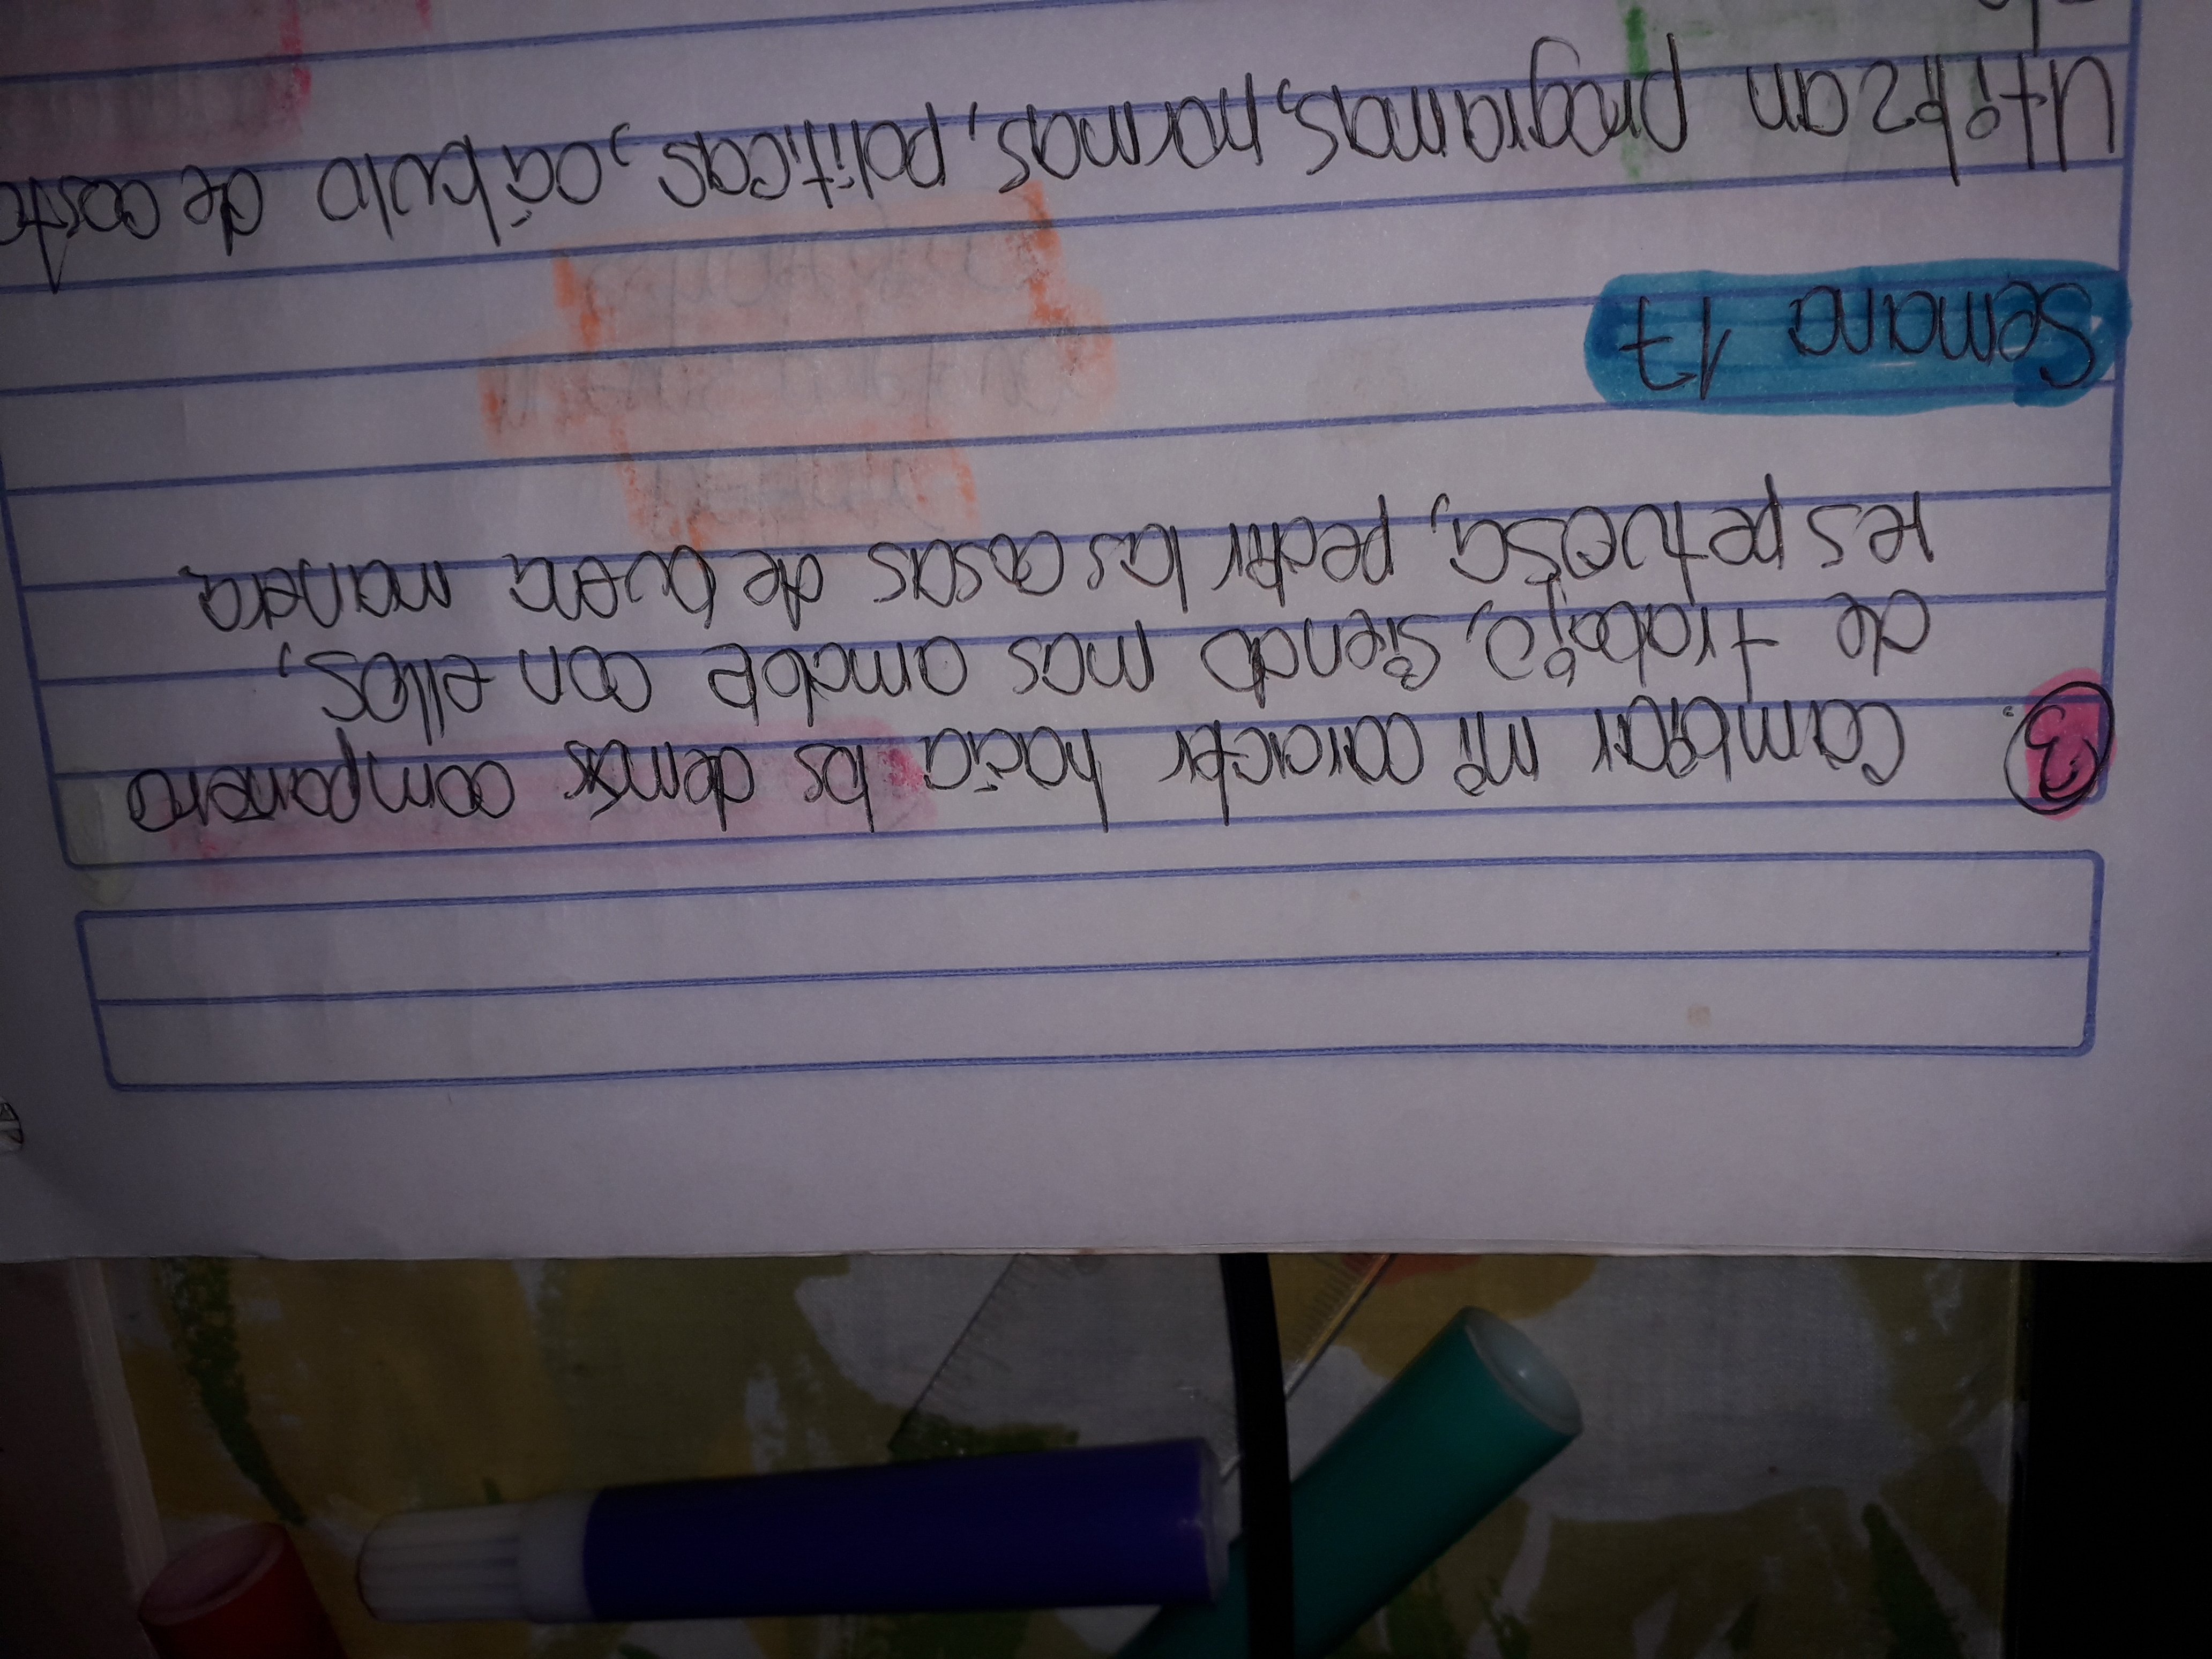 3. Cambiar mi caracter hacia los demás compañero
de trabajo, siendo mas amable con ellos,
respetuosa, pedir las cosas de buena manera
Semana 17
Utilizan programas, normas, politicas, cábulo de costo